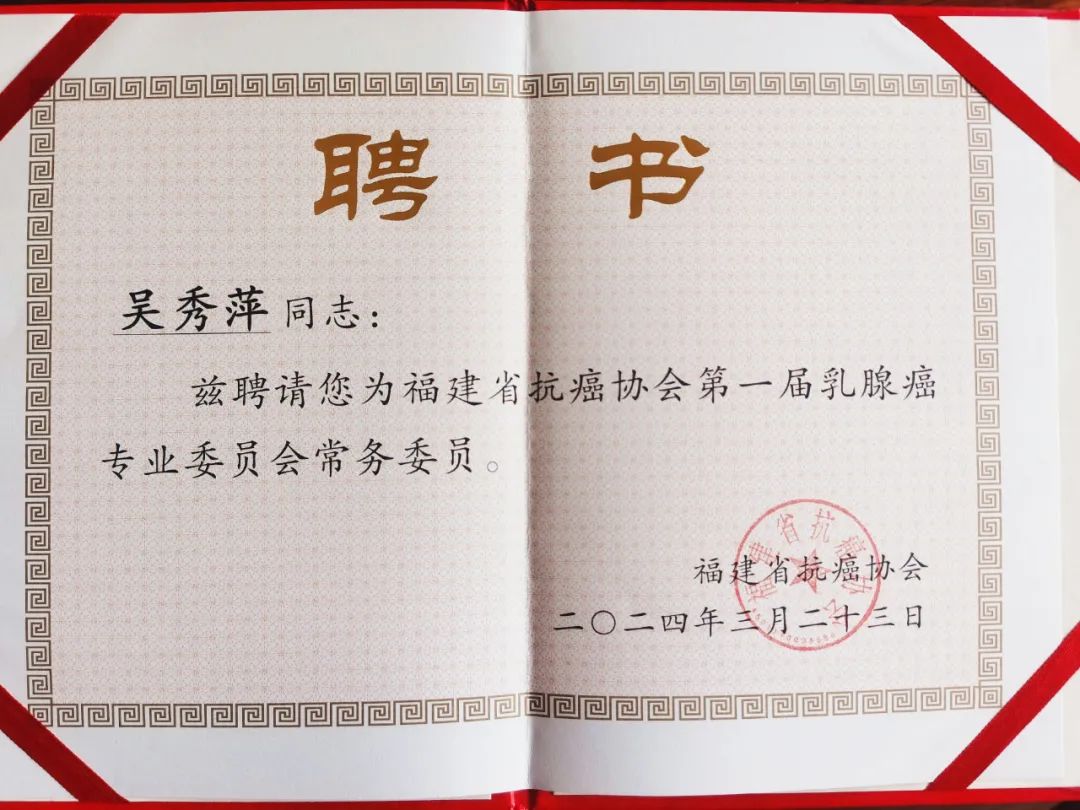 聘书
吴秀萍同志：
兹聘请您为福建省抗癌协会第一届乳腺癌
专业委员会常务委员。
福建省抗癌协会
二〇二四年三月二十三日
福建省抗癌协会